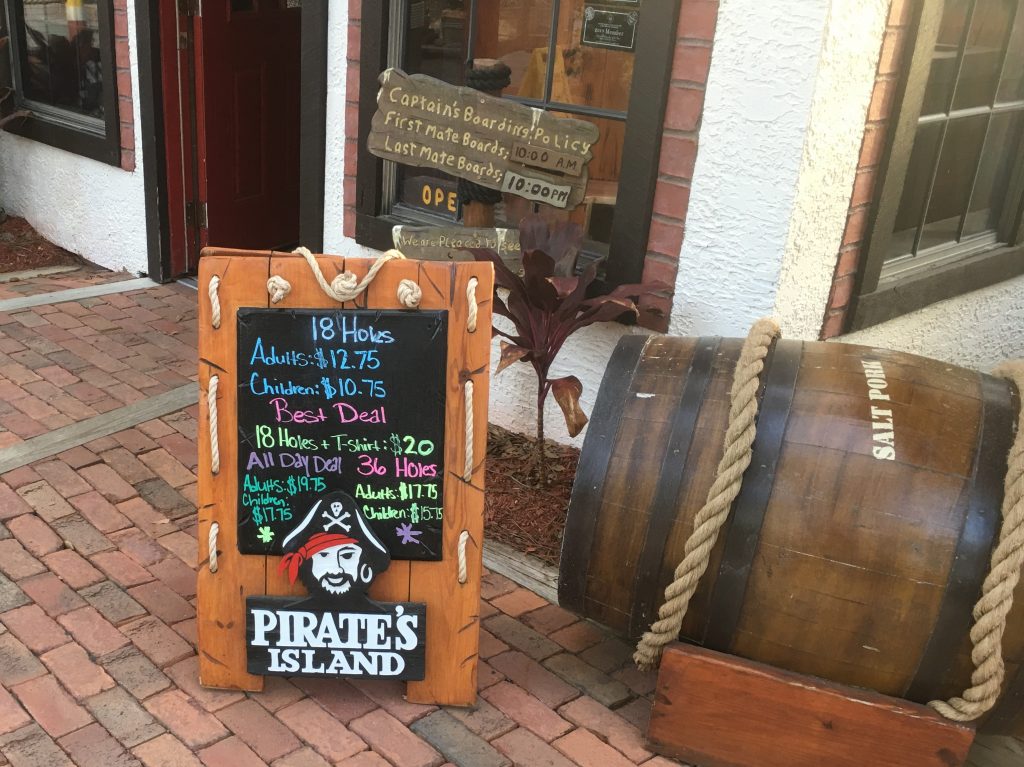 Captain's Boarding Policy
First Mate Boards; 10:00 A.M.
Last Mate Boards; 10:00PM
OPE
We are Pleased To see
18 Holes
Adults: $12.75
Children: $10.75
Best Deal
18 Holes + T-Shirt: $20
All Day Deal
Adults: $19.75
Children:
$17.75
36 Holes
Adults: $17.75
Children: $15.75
PIRATE'S
ISLAND
SALT PORK